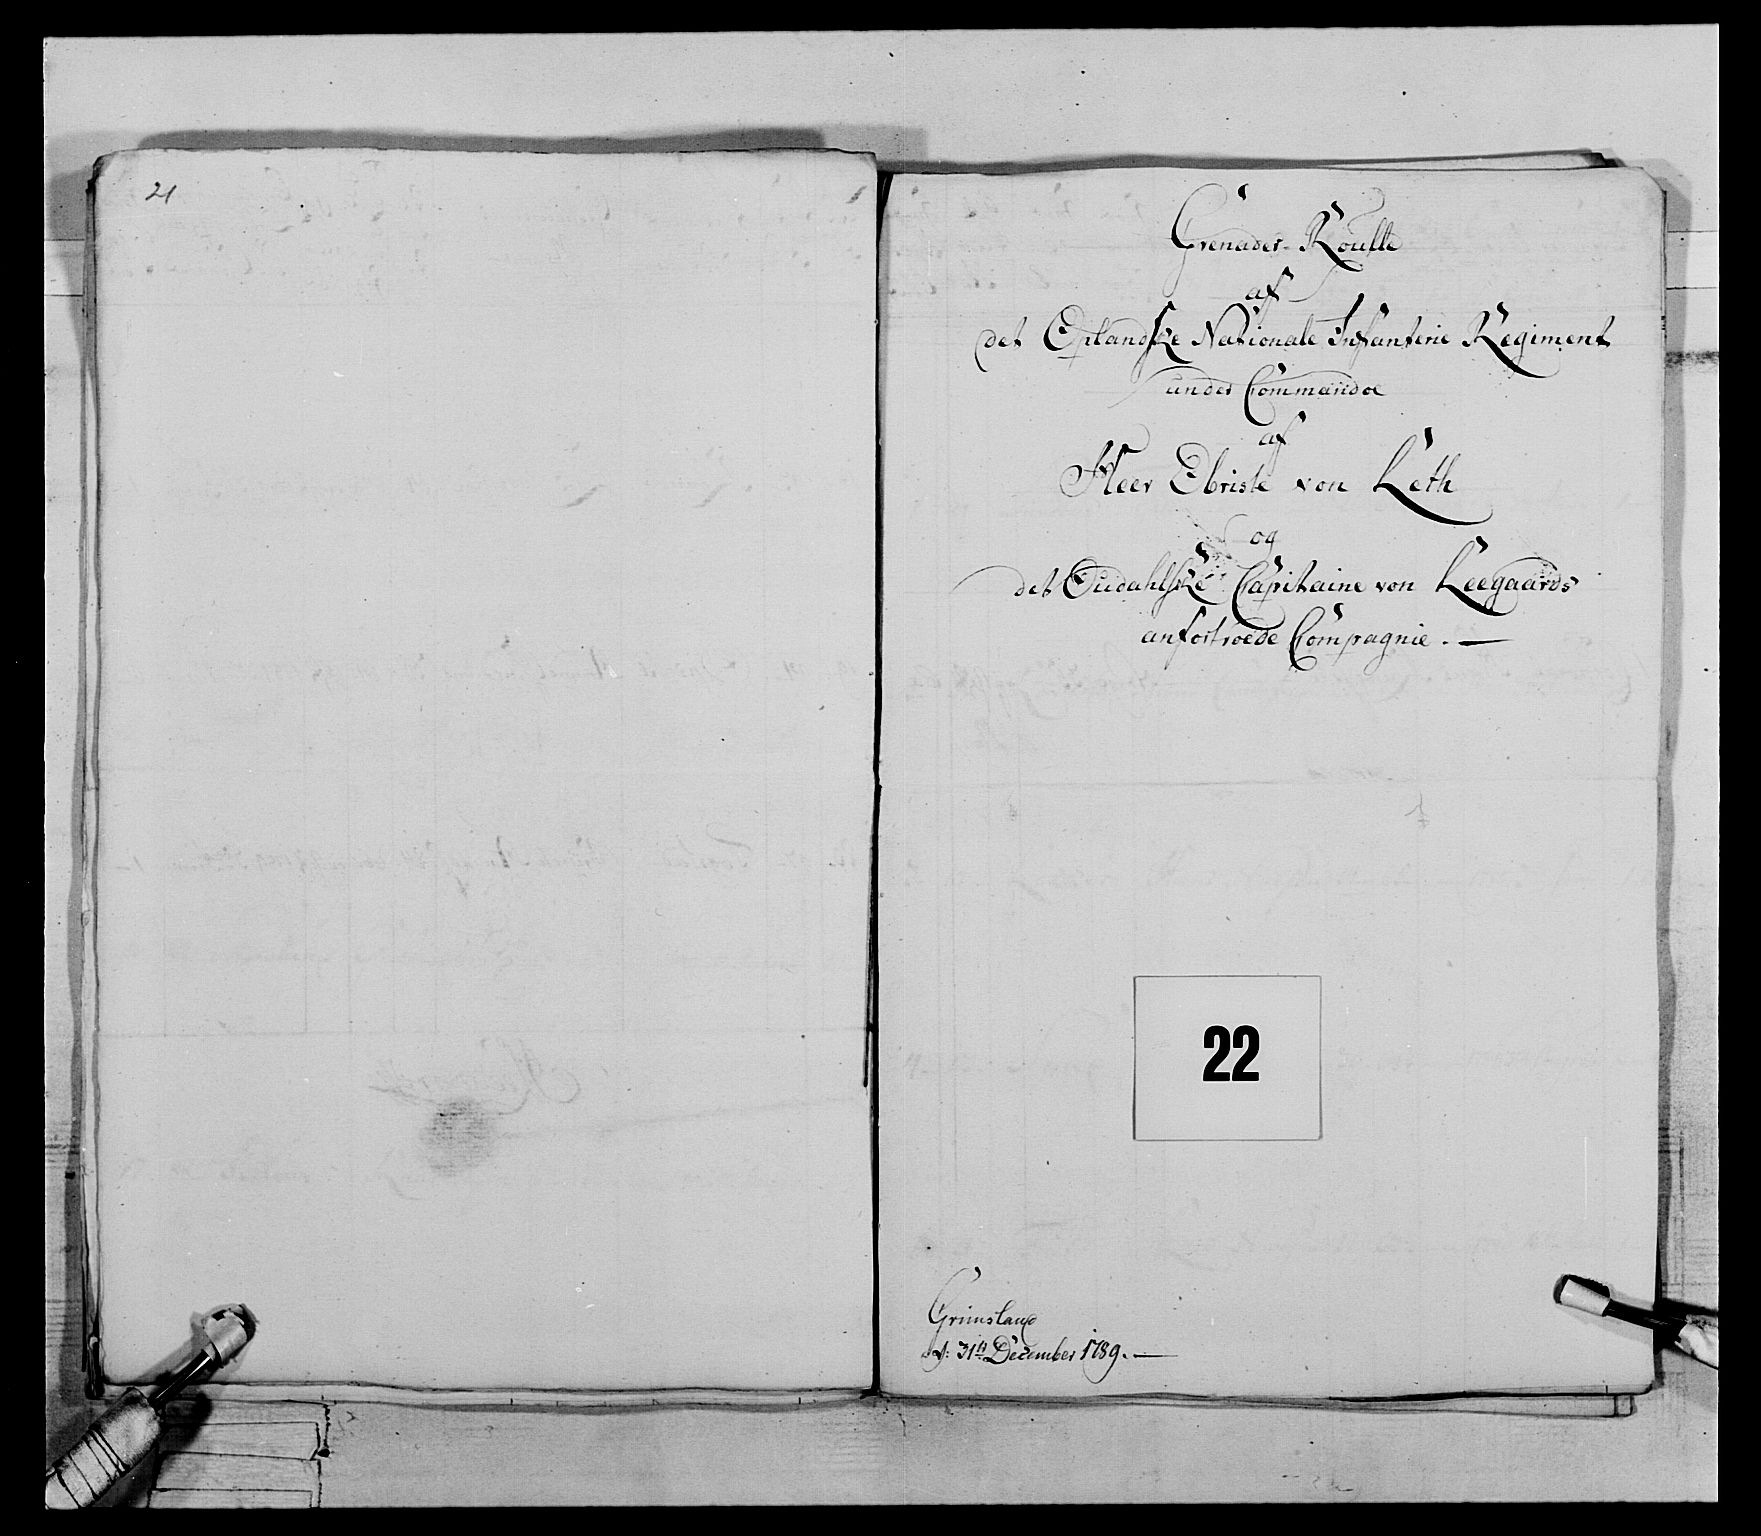 21
Grenader-Roulle
af
det Oplandske Nationale Infanterie Regiment
under Commandoe
af
Herr Obriste von Leth
og
det Oudahlske Capitaine von Leegaards
anfortroede Compagnie. —
22
Grimsland
d: 31te December 1789. —